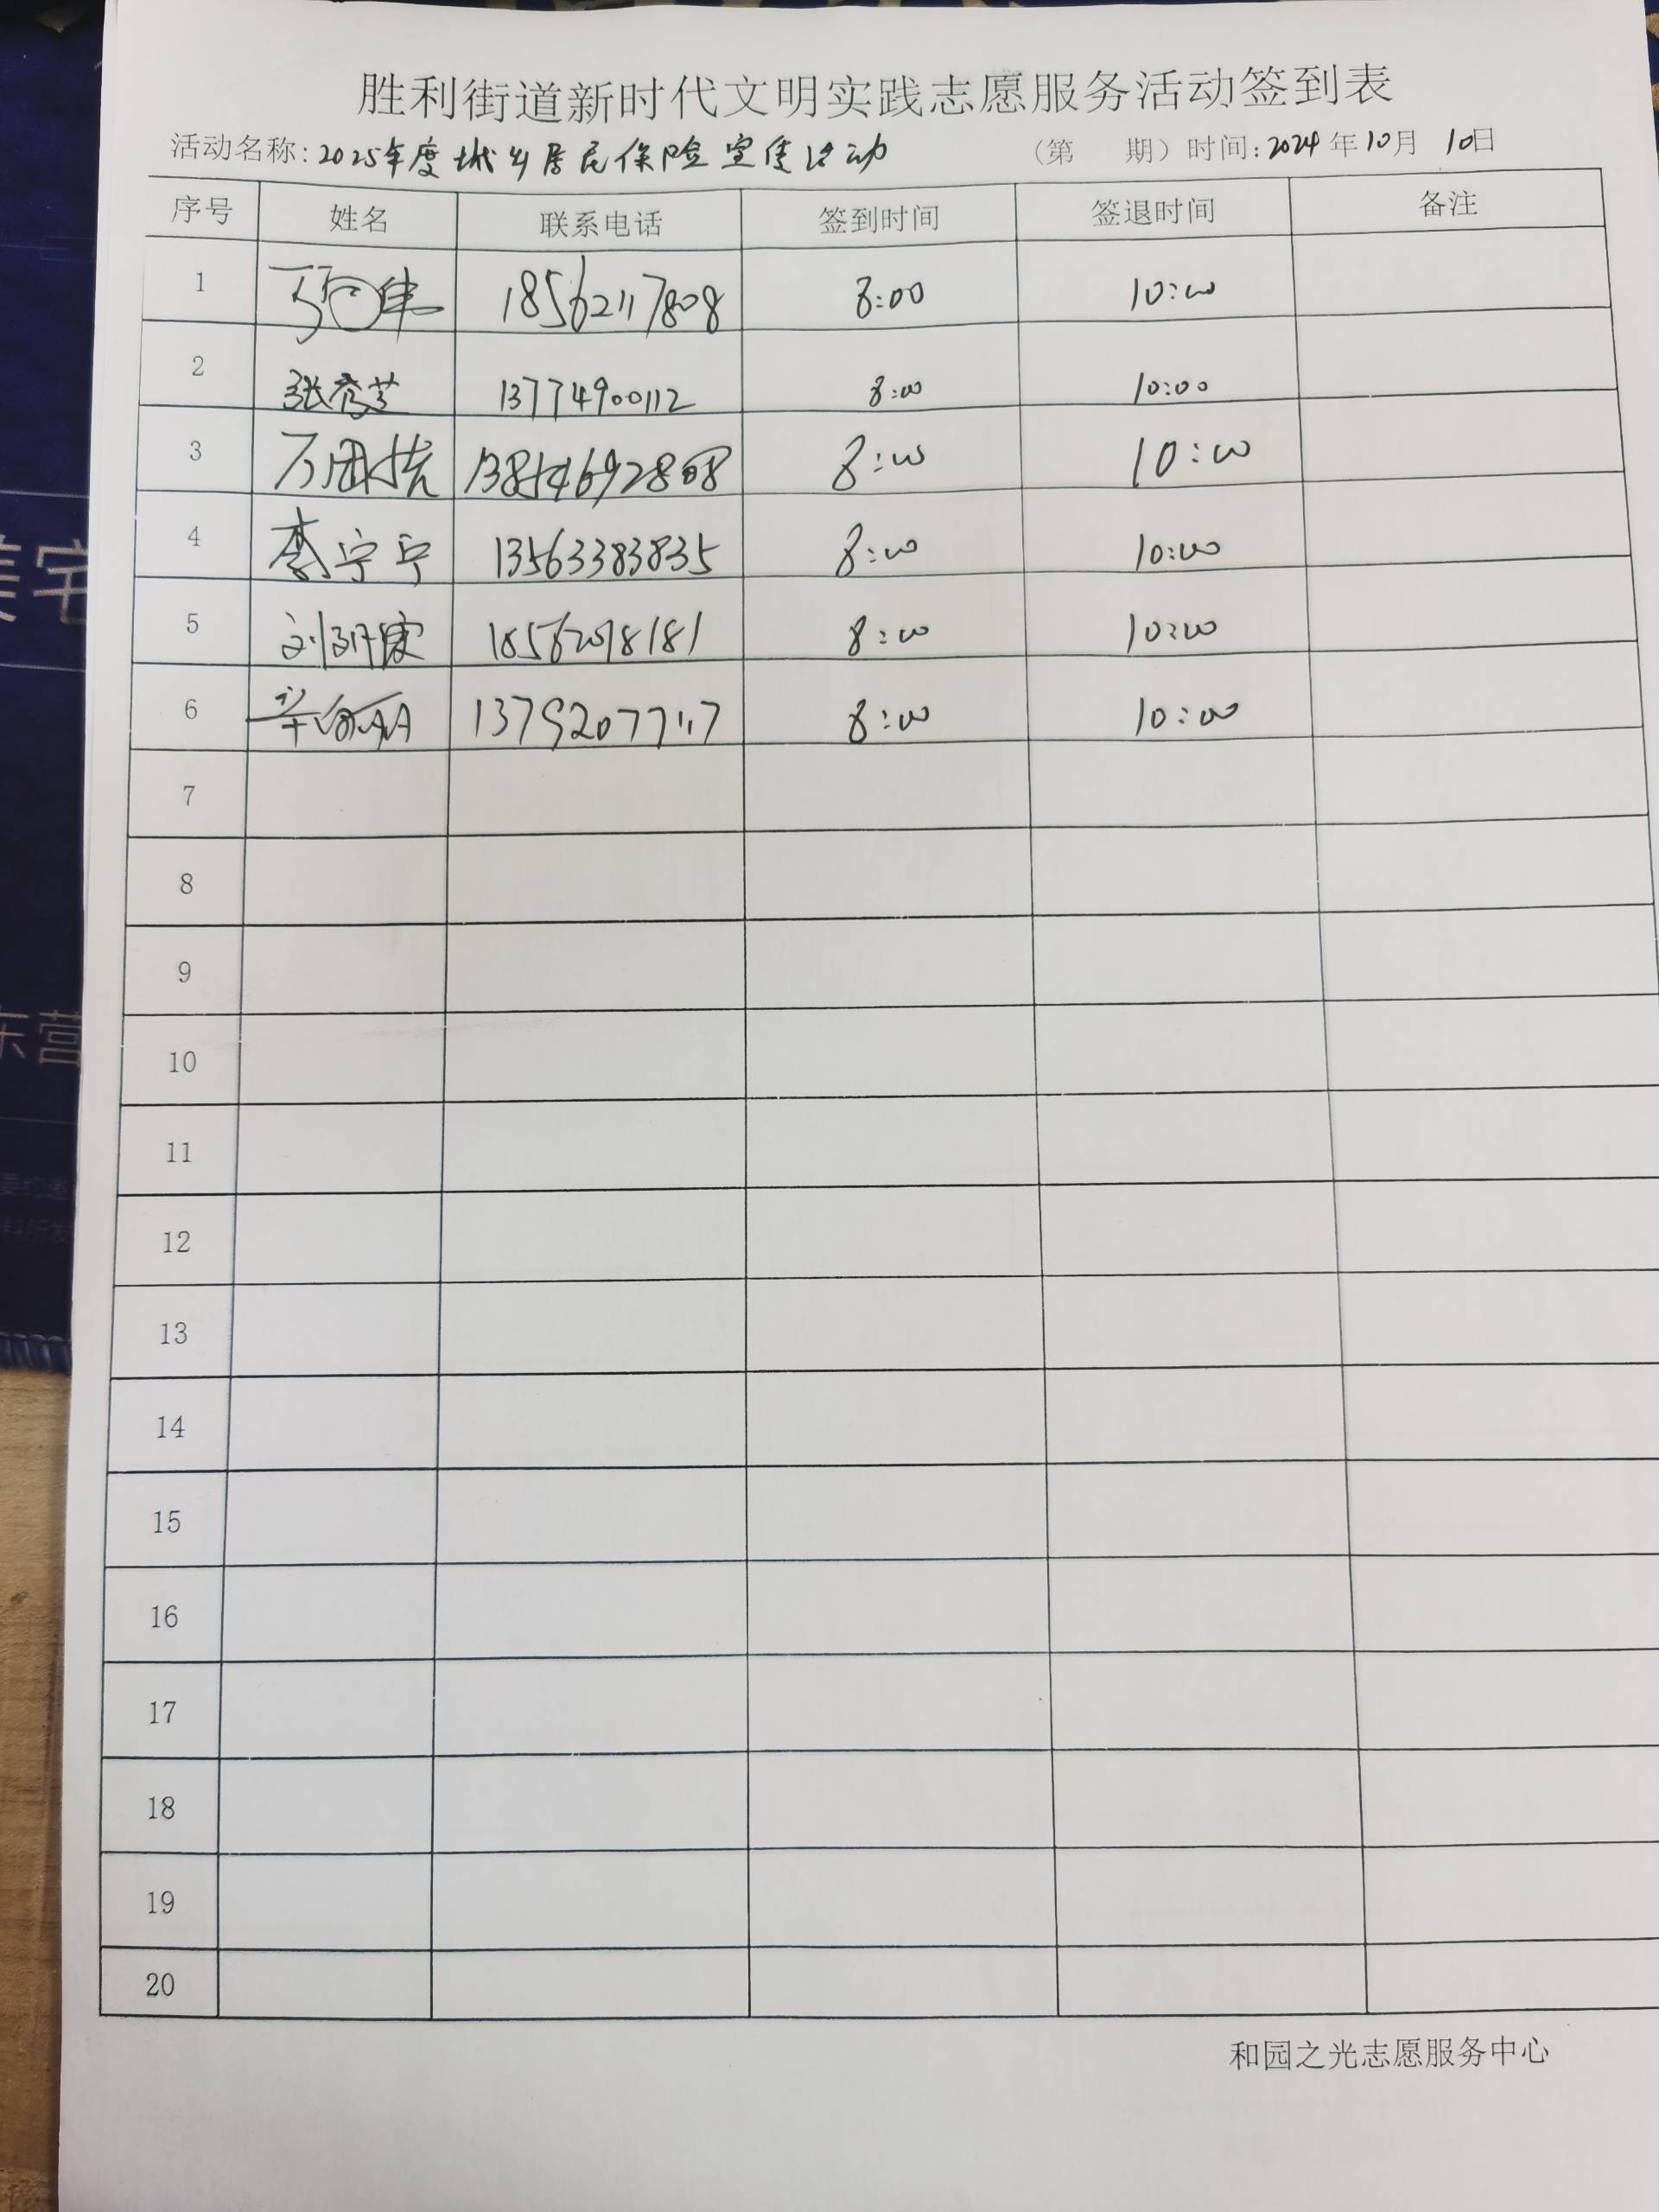 胜利街道新时代文明实践志愿服务活动签到表
活动名称:2025年度城乡居民保险宣传活动 （第 期）时间:2024年10月10日
序号 姓名 联系电话 签到时间 签退时间 备注
1 18562117808 8:00 10:00
2 张秀芝 13774900112 8:00 10:00
3 8:00 10:00
4 李宁宁 13563383835 8:00 10:00
5 8:00 10:00
6 8:00 10:00
7
8
9
10
11
12
13
14
15
16
17
18
19
20
和园之光志愿服务中心
美宅
东营